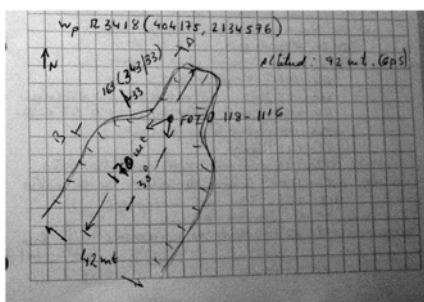 wp R3418 (404175, 2134576)
Altitud: 92 mt. (GPS)
N
A
163 (343/33)
33
B
FOTO 118-1116
170 mt
30°
42 mt